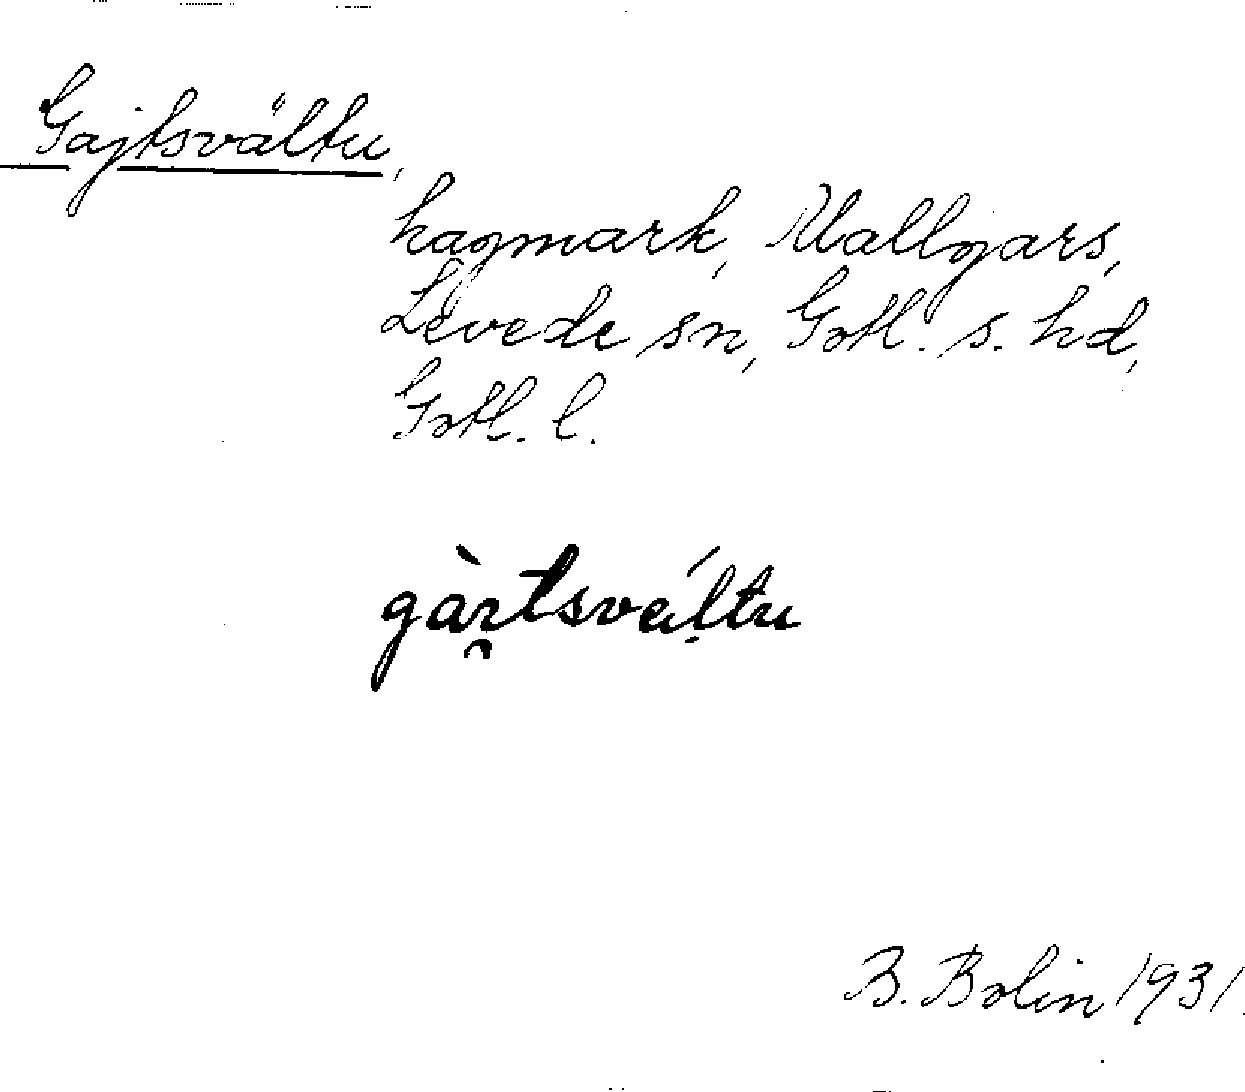 Gajtsvältu,
hagmark, Mallgars,
Levede sn, Gotl. s. hd,
Gotl. l.
gàı̯tsvéltu
B. Bolin 1931.